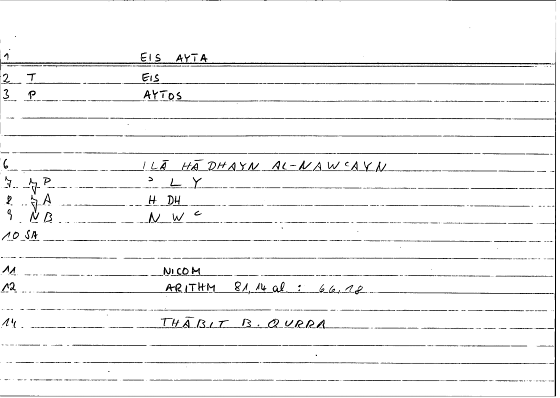 1 EIS AYTA
2 T EIS
3 P AYTOS
6 ILĀ HĀDHAYN AL-NAWʿAYN
7 P ʾ L Y
8 A H DH
9 NB N W ʿ
10 SA
11 NICOM
12 ARITHM 81,14 al : 66,18
14 THĀBIT B. QURRA